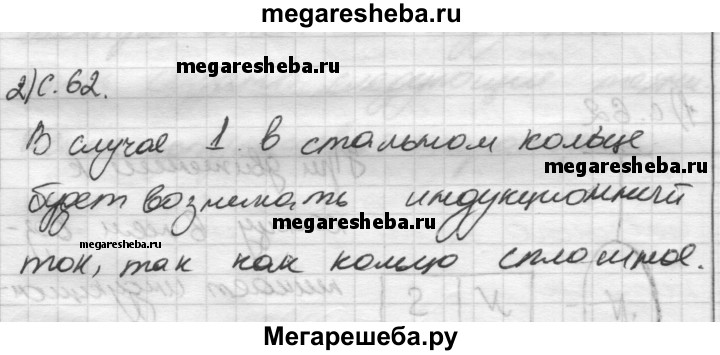 megaresheba.ru
megaresheba.ru
2) С. 62.
megaresheba.ru
В случае 1 в стальном кольце
megaresheba.ru
будет возникать индукционный
megaresheba.ru
megaresheba.ru
ток, так как кольцо сплошное.
Мегарешеба.ру